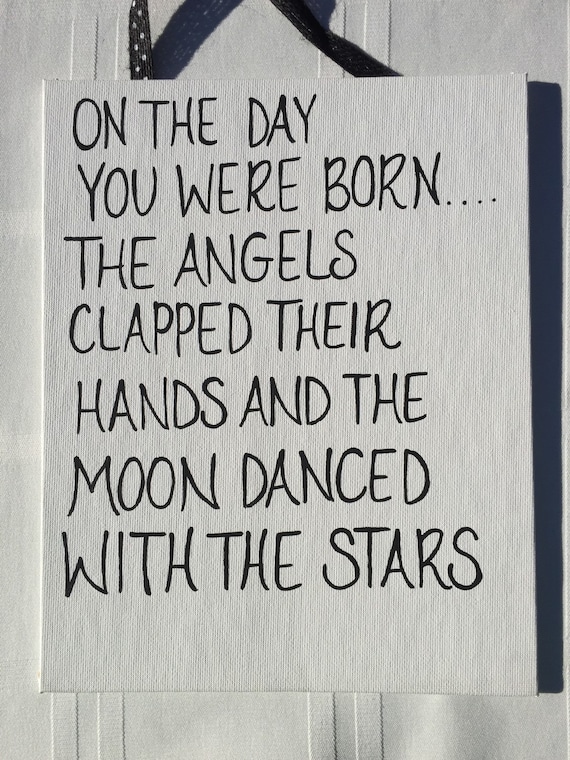 ON THE DAY
YOU WERE BORN....
THE ANGELS
CLAPPED THEIR
HANDS AND THE
MOON DANCED
WITH THE STARS